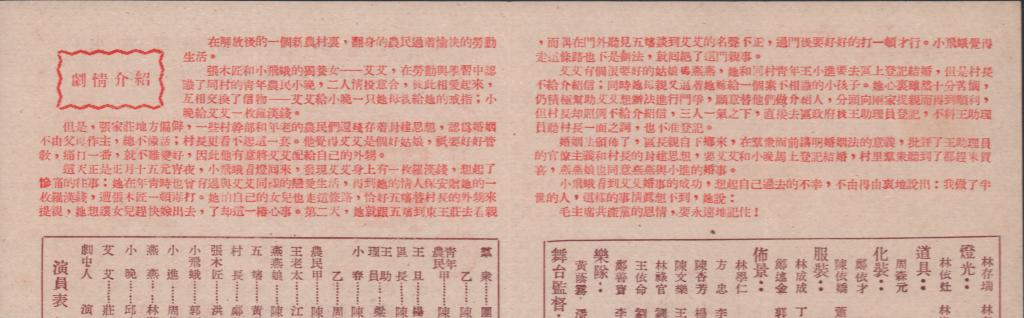 劇情介紹
在解放後的一個新農村裏，翻身的農民過着愉快的勞動
生活。
張木匠和小飛蛾的獨養女——艾艾，在勞動與學習中認
識了同村的青年農民小晚，二人情投意合，彼此相愛起來，
互相交換了信物——艾艾給小晚一只她母親給她的戒指；小
晚給艾艾一枚羅漢錢。
但是，張家莊地方偏僻，一些村幹部和年老的農民們還殘存着封建思想，認爲婚姻
不由父母作主，總不像話；村長更看不起這一套。他覺得艾艾是個好姑娘，祇要好好管
教，痛打一番，就不難變好，因此他有意將艾艾配給自己的外甥。
這天正是正月十五元宵夜，小飛蛾看燈回來，發現艾艾身上有一枚羅漢錢，想起了
慘痛的往事：她在年青時也曾有過與艾艾同樣的戀愛生活，再得到她的情人保安贈她的一
枚羅漢錢，遭張木匠一頓毒打。她怕自己的女兒也走這條路，恰好五嬸替村長的外甥來
提親，她想讓女兒趕快嫁出去，了却這一樁心事。第二天，她就跟五嬸到東王莊去看親
，而再在門外聽見五嬸談到艾艾的名聲不正，過門後要好好的打一頓才行。小飛蛾覺得
走這條路也不是辦法，就回絕了這門親事。
艾艾有個很要好的姑娘馬燕燕，她和同村青年王小進要去區上登記結婚，但是村長
不給介紹信；同時她母親又逼着她嫁給一個素不相識的孩子。她心裏雖然十分苦惱，
仍積極幫助艾艾想辦法進行鬥爭，願意替他們做介紹人，分頭向兩家提親而得到順利，
但村長却照例不給介紹信，三人一氣之下，直接去區政府找王助理員登記，不料王助理
員聽村長一面之詞，也不准登記。
婚姻法頒佈了，區長親自下鄉來，在羣衆面前講明婚姻法的意義，批評了王助理員
的官僚主義和村長的封建思想，要艾艾和小晚馬上登記結婚，村里羣衆聽到了都趕來賀
喜，燕燕娘也同意燕燕與小進的婚事。
小飛蛾看到艾艾婚事的成功，想起自己過去的不幸，不由得由衷地說出：我做了半
世的人，這樣的事情眞想不到，她說：
毛主席共產黨的恩情，要永遠地記住！
演員表
劇中人 演
艾艾……莊
小晚……邱
燕燕……林
小進……周
小飛蛾……郭
張木匠……洪
村長……鄭
五嬸……黃
燕燕娘……陳
王老太……江
農民甲……陳
乙……周
小春……陳
王助理員……梁
區長……黃
王旦……楊
青年農民甲……陳
乙……陳
羣衆……團
舞台監督：
黃蔭霧 潘
樂隊：
鄭善寶 李
王依命 劉
林驥官 劉
陳文樂 王
陳杏芳 楊
方忠 李
林學仁
佈景：
鄭遙金 郭
林成成 丁
服裝：
陳依嬌 蕭
鄭依才
化裝：
周森元
道具：
林依灶 林
燈光：
林存瑞 林